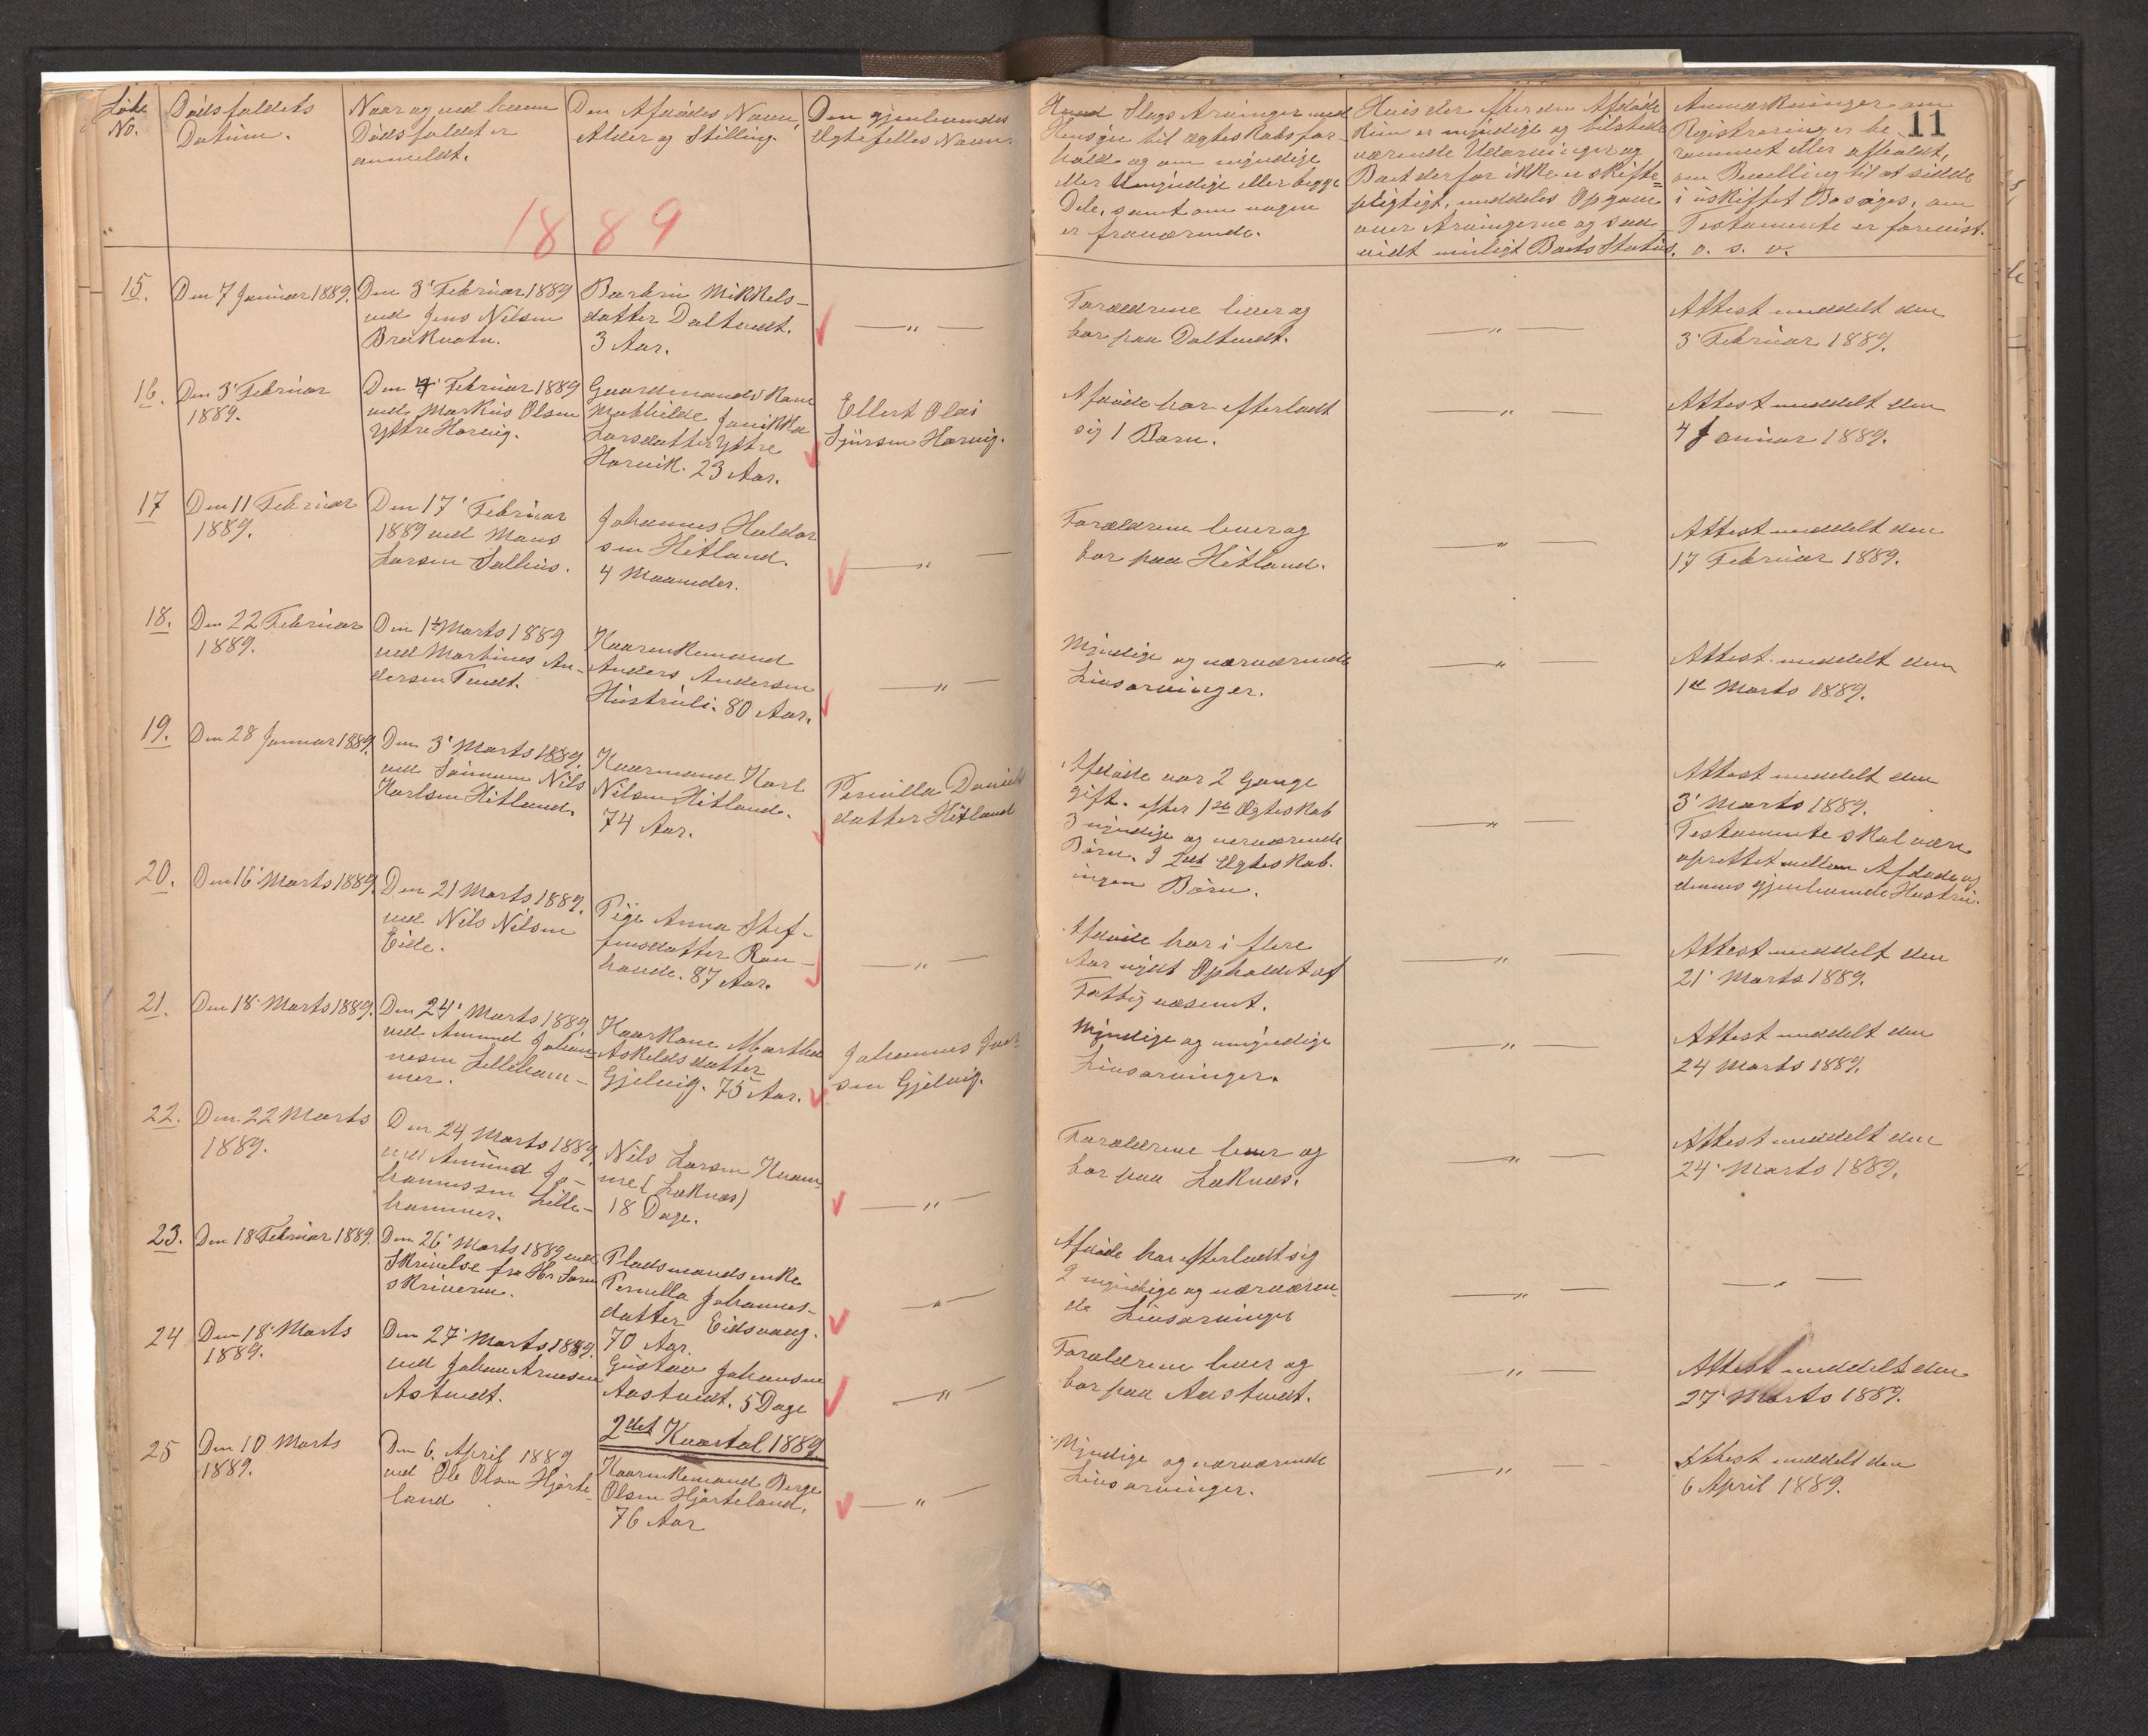 Löbe No.
Dödsfaldets
Datum.
Naar og ved hvem
Dödsfaldet er
anmeldt.
Den Afdödes Navn,
Alder og Stilling.
Den gjenlevendes
Ægtefelles Navn.
1889
Hvad Slags Arvinger med
Hensyn til Ægteskabsfor-
hold og om myndige
eller Umyndige eller begge
Dele, samt om nogen
er fraværende.
Hvis der efter den Afdöde
kun er myndige og tilstede
værende Udarvinger og
Boet derfor ikke er skifte=
pligtigt, meddeles Opgave
over Arvingerne og saa
vidt muligt Boets Status.
Anmærkninger om
Registrering er be
rammet eller afholdt,
om Bevilling til at sidde
i uskiftet Bo söges, om
Testamente er forevist.
o. s. v.
11
15.
Den 7 Januar 1889.
Den 3' Februar 1889
ved Jens Nilsen
Brakvatn.
Barbru Mikkels-
datter Daltvedt.
3 Aar.
— " —
Forældrene lever og
bor paa Daltvedt.
— " —
Attest meddelt den
3' Februar 1889.
16.
Den 3' Februar
1889.
Den 4' Februar 1889
ved Markus Olsen
Yttre Horvig.
Gaardmands Kone
Mathilde Janikka
Larsdatter Yttre
Horvik. 23 Aar.
Ellert Olai
Sjursen Horvig.
Afdöde har efterladt
sig 1 Barn.
— " —
Attest meddelt den
4 Januar 1889.
17
Den 11 Februar
1889.
Den 17' Februar
1889 ved Mons
Larsen
Johannes Haldor
sen Hitland.
4 Maaneder.
— " —
Forældrene lever og
bor paa Hitland.
— " —
Attest meddelt den
17 Februar 1889.
18.
Den 22 Februar
1889.
Den 1ste Marts 1889
ved Martines An-
dersen Tvedt.
Kaarenkemand
Anders Andersen
Hustruli. 80 Aar.
— " —
Myndige og nærværende
Livsarvinger.
— " —
Attest meddelt den
1ste Marts 1889.
19.
Den 28 Januar 1889.
Den 3' Marts 1889.
ved Sönnen Nils
Karlsen Hitland.
Kaarmand Karl
Nilsen Hitland.
74 Aar.
Pernilla Daniels
datter Hitland
Afdöde var 2 Gange
gift. efter 1ste Ægteskab
3 myndige og nærværende
Börn. I 2det Ægteskab.
ingen Börn.
— " —
Attest meddelt den
3' Marts 1889.
Testamente skal være
oprettet mellem Afdöde og
dennes gjenlevende Hustru.
20.
Den 16' Marts 1889.
Den 21 Marts 1889.
ved Nils Nilsen
Eide.
Pige Anna Stef-
fensdatter Ron-
havde. 87 Aar.
— " —
Afdöde har i flere
Aar nydt Opholdet af
Fattigvæsenet.
— " —
Attest meddelt den
21' Marts 1889.
21.
Den 18' Marts 1889.
Den 24' Marts 1889.
ved Amund Johan-
nesen Lilleham-
mer.
Kaarkone Martha
Askeldsdatter
Gjelvig. 75 Aar.
Johannes
sen Gjelvig.
Myndige og umyndige
Livsarvinger.
— " —
Attest meddelt den
24 Marts 1889.
22.
Den 22 Marts
1889.
Den 24 Marts 1889.
ved Amund Jo-
hannessen Lille-
hammer.
Nils Larsen Kvam-
me (Løknæs)
18 Dage.
— " —
Forældrene lever og
bor paa Løknæs.
— " —
Attest meddelt den
24' Marts 1889.
23.
Den 18 Februar 1889.
Den 26' Marts 1889 ved
Skrivelse fra Hr. Soren
skriveren.
Pladsmandsenke
Pernilla Johannes-
datter Eidsvaag.
70 Aar.
— " —
Afdöde har efterladt sig
2 myndige og nærværen-
de Livsarvinger
— " —
— " —
24
Den 18' Marts
1889.
Den 27' Marts 1889.
ved Johan Arnesen
Astvedt.
Gustav Johansen
Aastvedt. 5 Dage
— " —
Forældrene lever og
bor paa Aastvedt.
— " —
Attest meddelt den
27' Marts 1889.
2det Kvartal 1889.
25
Den 10 Marts
1889.
Den 6. April 1889
ved Ole Olsen Hjorte-
land
Kaarenkemand Berge
Olsen Hjorteland,
76 Aar
— " —
Myndige og nærværende
Livsarvinger.
— " —
Attest meddelt den
6 April 1889.